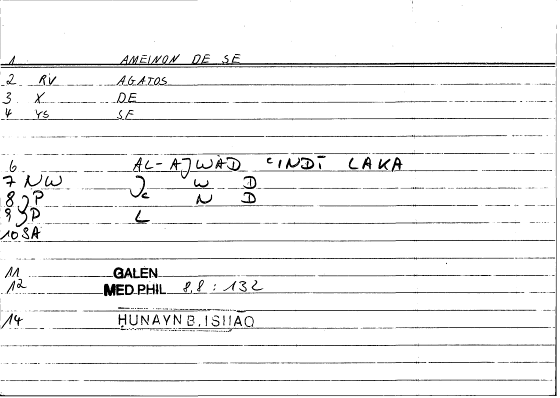 1 AMEINON DE SE
2 RV AGATOS
3 X DE
4 YS SE
6 AL-AJWAD ʿINDI LAKA
7 NW J W D
8 JP ʿ N D
9 JD L
10 SA
11 GALEN
12 MED.PHIL 8,8 : 132
14 HUNAYN B. ISHAQ